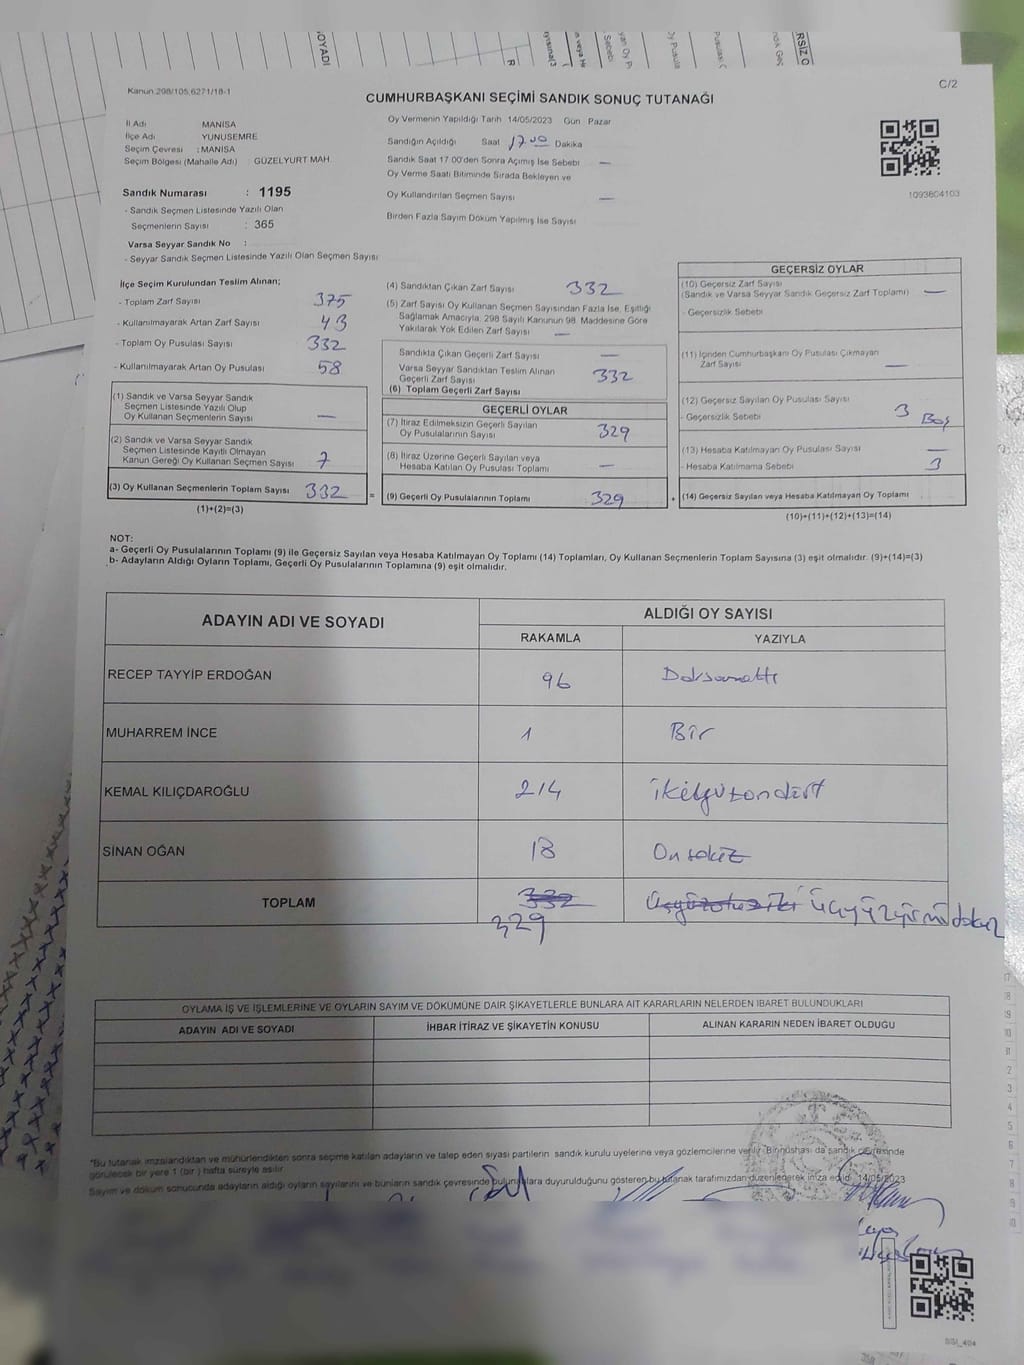 OYADI
Kanun 298/105,6271/18-1
C/2
CUMHURBAŞKANI SEÇİMİ SANDIK SONUÇ TUTANAĞI
İl Adı MANİSA
İlçe Adı YUNUSEMRE
Seçim Çevresi : MANİSA
Seçim Bölgesi (Mahalle Adı) : GÜZELYURT MAH.
Sandık Numarası : 1195
- Sandık Seçmen Listesinde Yazılı Olan
Seçmenlerin Sayısı : 365
Varsa Seyyar Sandık No :
- Seyyar Sandık Seçmen Listesinde Yazılı Olan Seçmen Sayısı
Oy Vermenin Yapıldığı Tarih 14/05/2023 Gün Pazar
Sandığın Açıldığı Saat 17 00 Dakika
Sandık Saat 17 00'den Sonra Açımış İse Sebebi —
Oy Verme Saati Bitiminde Sırada Bekleyen ve
Oy Kullandırılan Seçmen Sayısı —
Birden Fazla Sayım Döküm Yapılmış İse Sayısı
1093804103
İlçe Seçim Kurulundan Teslim Alınan;
- Toplam Zarf Sayısı 375
- Kullanılmayarak Artan Zarf Sayısı 43
- Toplam Oy Pusulası Sayısı 332
- Kullanılmayarak Artan Oy Pusulası 58
(1) Sandık ve Varsa Seyyar Sandık
Seçmen Listesinde Yazılı Olup
Oy Kullanan Seçmenlerin Sayısı —
(2) Sandık ve Varsa Seyyar Sandık
Seçmen Listesinde Kayıtlı Olmayan
Kanun Gereği Oy Kullanan Seçmen Sayısı 7
(3) Oy Kullanan Seçmenlerin Toplam Sayısı 332 =
(1)+(2)=(3)
(4) Sandıktan Çıkan Zarf Sayısı 332
(5) Zarf Sayısı Oy Kullanan Seçmen Sayısından Fazla İse, Eşitliği
Sağlamak Amacıyla, 298 Sayılı Kanunun 98. Maddesine Göre
Yakılarak Yok Edilen Zarf Sayısı —
Sandıkta Çıkan Geçerli Zarf Sayısı —
Varsa Seyyar Sandıktan Teslim Alınan
Geçerli Zarf Sayısı 332
(6) Toplam Geçerli Zarf Sayısı
GEÇERLİ OYLAR
(7) İtiraz Edilmeksizin Geçerli Sayılan
Oy Pusulalarının Sayısı 329
(8) İtiraz Üzerine Geçerli Sayılan veya
Hesaba Katılan Oy Pusulası Toplamı —
(9) Geçerli Oy Pusulalarının Toplamı 329 +
GEÇERSİZ OYLAR
(10) Geçersiz Zarf Sayısı
(Sandık ve Varsa Seyyar Sandık Geçersiz Zarf Toplamı) —
- Geçersizlik Sebebi
(11) İçinden Cumhurbaşkanı Oy Pusulası Çıkmayan
Zarf Sayısı —
(12) Geçersiz Sayılan Oy Pusulası Sayısı 3
- Geçersizlik Sebebi Boş
(13) Hesaba Katılmayan Oy Pusulası Sayısı —
- Hesaba Katılmama Sebebi 3
(14) Geçersiz Sayılan veya Hesaba Katılmayan Oy Toplamı
(10)+(11)+(12)+(13)=(14)
NOT:
a- Geçerli Oy Pusulalarının Toplamı (9) ile Geçersiz Sayılan veya Hesaba Katılmayan Oy Toplamı (14) Toplamları, Oy Kullanan Seçmenlerin Toplam Sayısına (3) eşit olmalıdır. (9)+(14)=(3)
b- Adayların Aldığı Oyların Toplamı, Geçerli Oy Pusulalarının Toplamına (9) eşit olmalıdır.
ADAYIN ADI VE SOYADI
ALDIĞI OY SAYISI
RAKAMLA YAZIYLA
RECEP TAYYİP ERDOĞAN 96 Doksanaltı
MUHARREM İNCE 1 Bir
KEMAL KILIÇDAROĞLU 214 ikiyüzondört
SİNAN OĞAN 18 Onsekiz
TOPLAM 332 Üçyüzotuziki üçyüzyirmidokuz
329
OYLAMA İŞ VE İŞLEMLERİNE VE OYLARIN SAYIM VE DÖKÜMÜNE DAİR ŞİKAYETLERLE BUNLARA AİT KARARLARIN NELERDEN İBARET BULUNDUKLARI
ADAYIN ADI VE SOYADI İHBAR İTİRAZ VE ŞİKAYETİN KONUSU ALINAN KARARIN NEDEN İBARET OLDUĞU
*Bu tutanak imzalandıktan ve mühürlendikten sonra seçime katılan adayların ve talep eden siyasi partilerin sandık kurulu üyelerine veya gözlemcilerine verilir. Bir nüshası da sandık çevresinde
görülecek bir yere 1 (bir) hafta süreyle asılır.
Sayım ve döküm sonucunda adayların aldığı oyların sayılarını ve bunların sandık çevresinde bulunanlara duyurulduğunu gösteren bu tutanak tarafımızdan düzenlenerek imza edildi. 14/05/2023